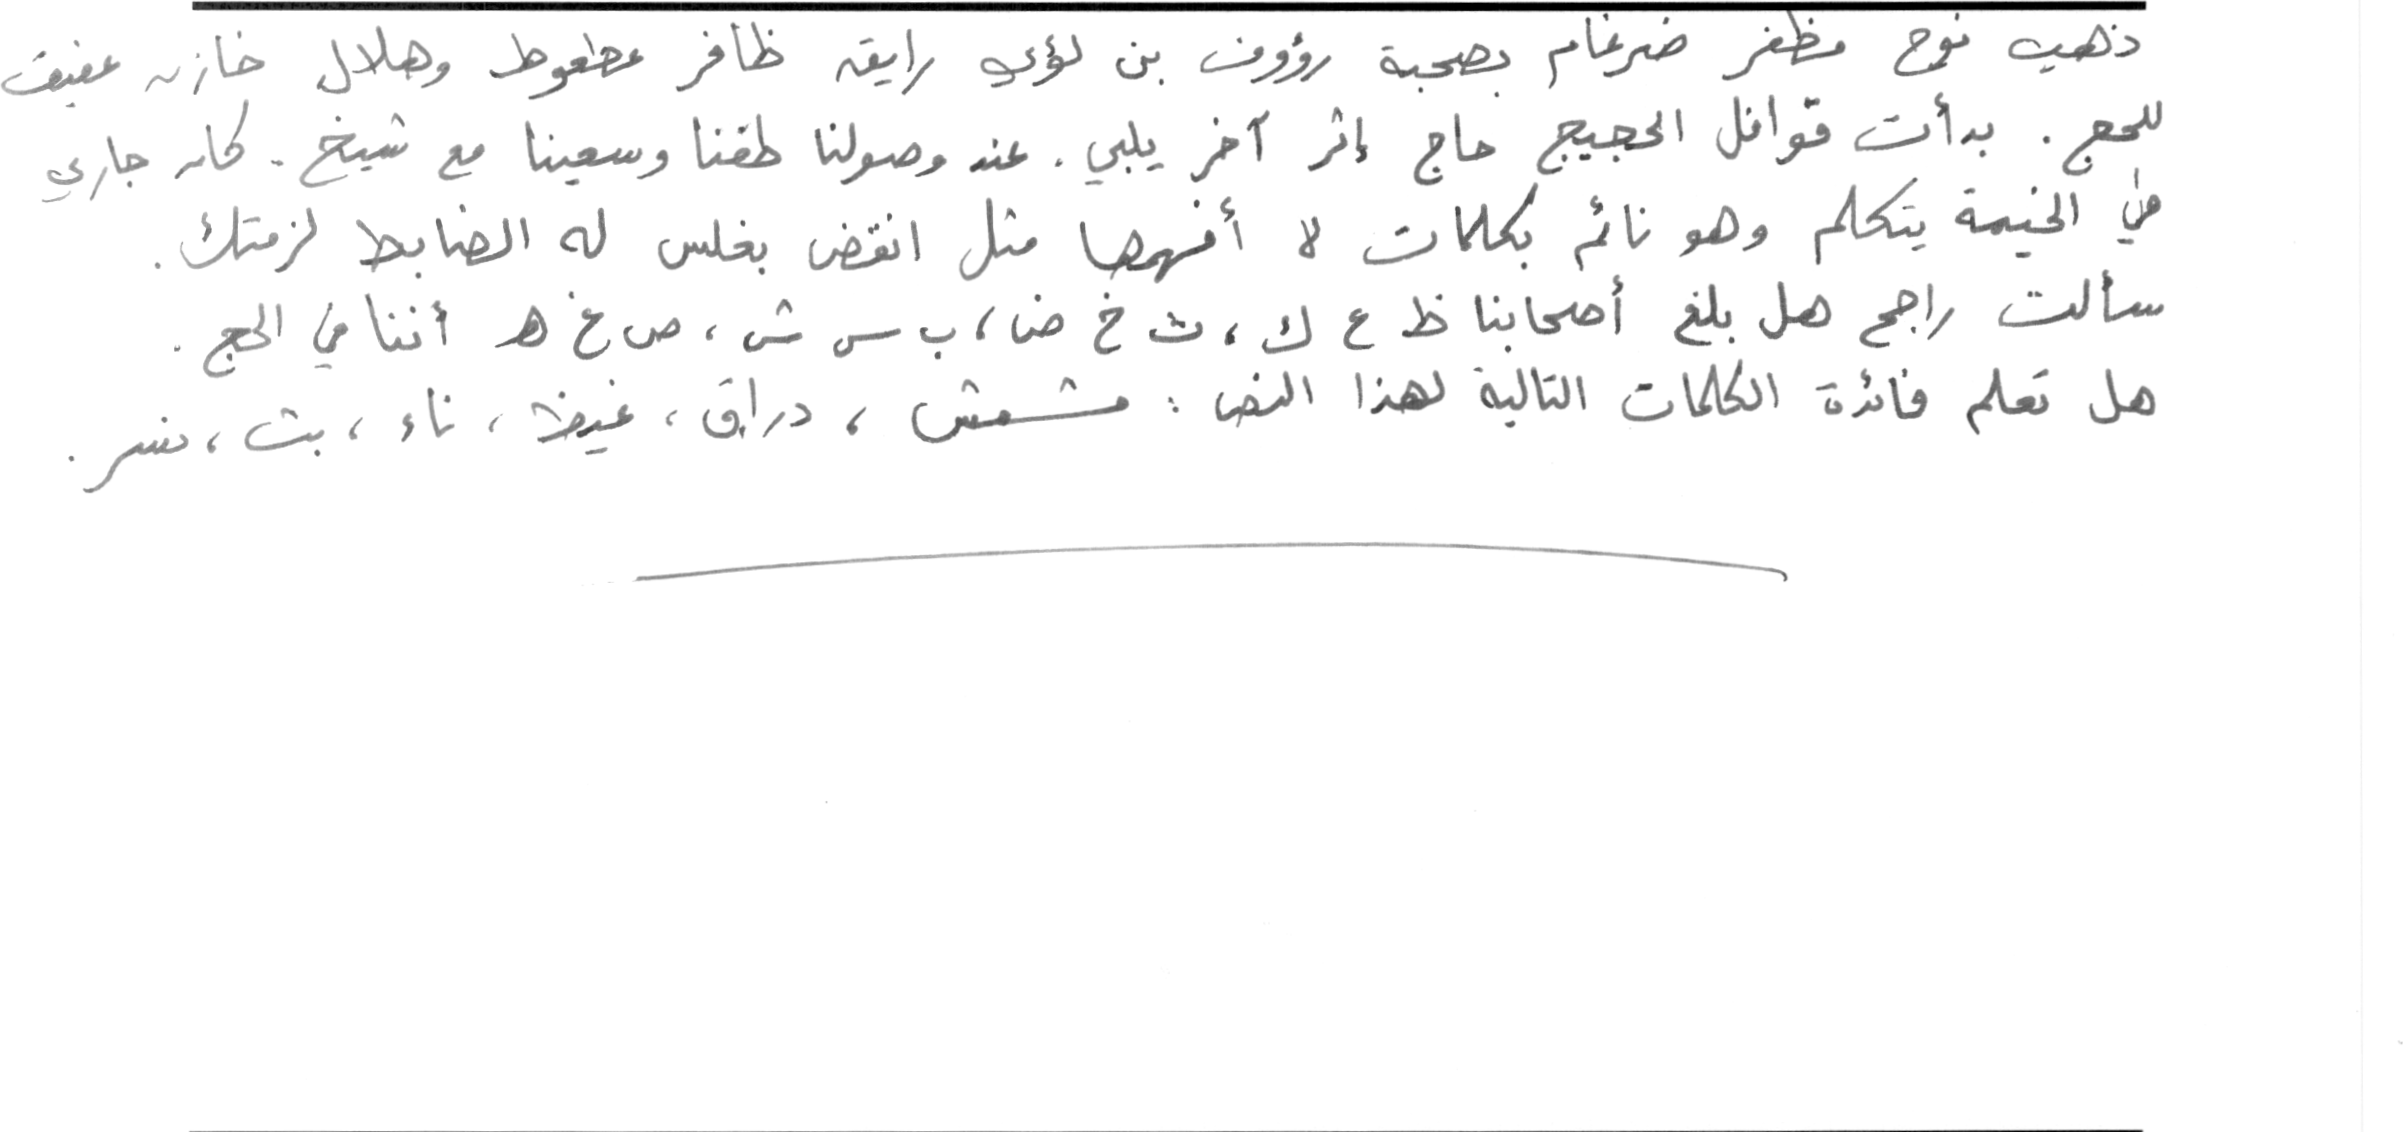 ذهب نوح مظفر ضرغام بصحبة رؤوف بن لؤي رايق ظافر عطعوط وهلال خازن عفيف
للحج. بدأت قوافل الحجيج حاج إثر آخر يلبي. عند وصولنا طفنا وسعينا مع شيخ. كان جاري
في الخيمة يتكلم وهو نائم بكلمات لا أفهمها مثل انقض بغلس له الضابط لزمتك.
سألت راجح هل بلغ أصحابنا ظ ع ك، ث خ ض، ب س ش، ص غ هـ أننا في الحج.
هل تعلم فائدة الكلمات التالية لهذا النص: مشمش، دراق، غيظ، ناء، بث، نسر.